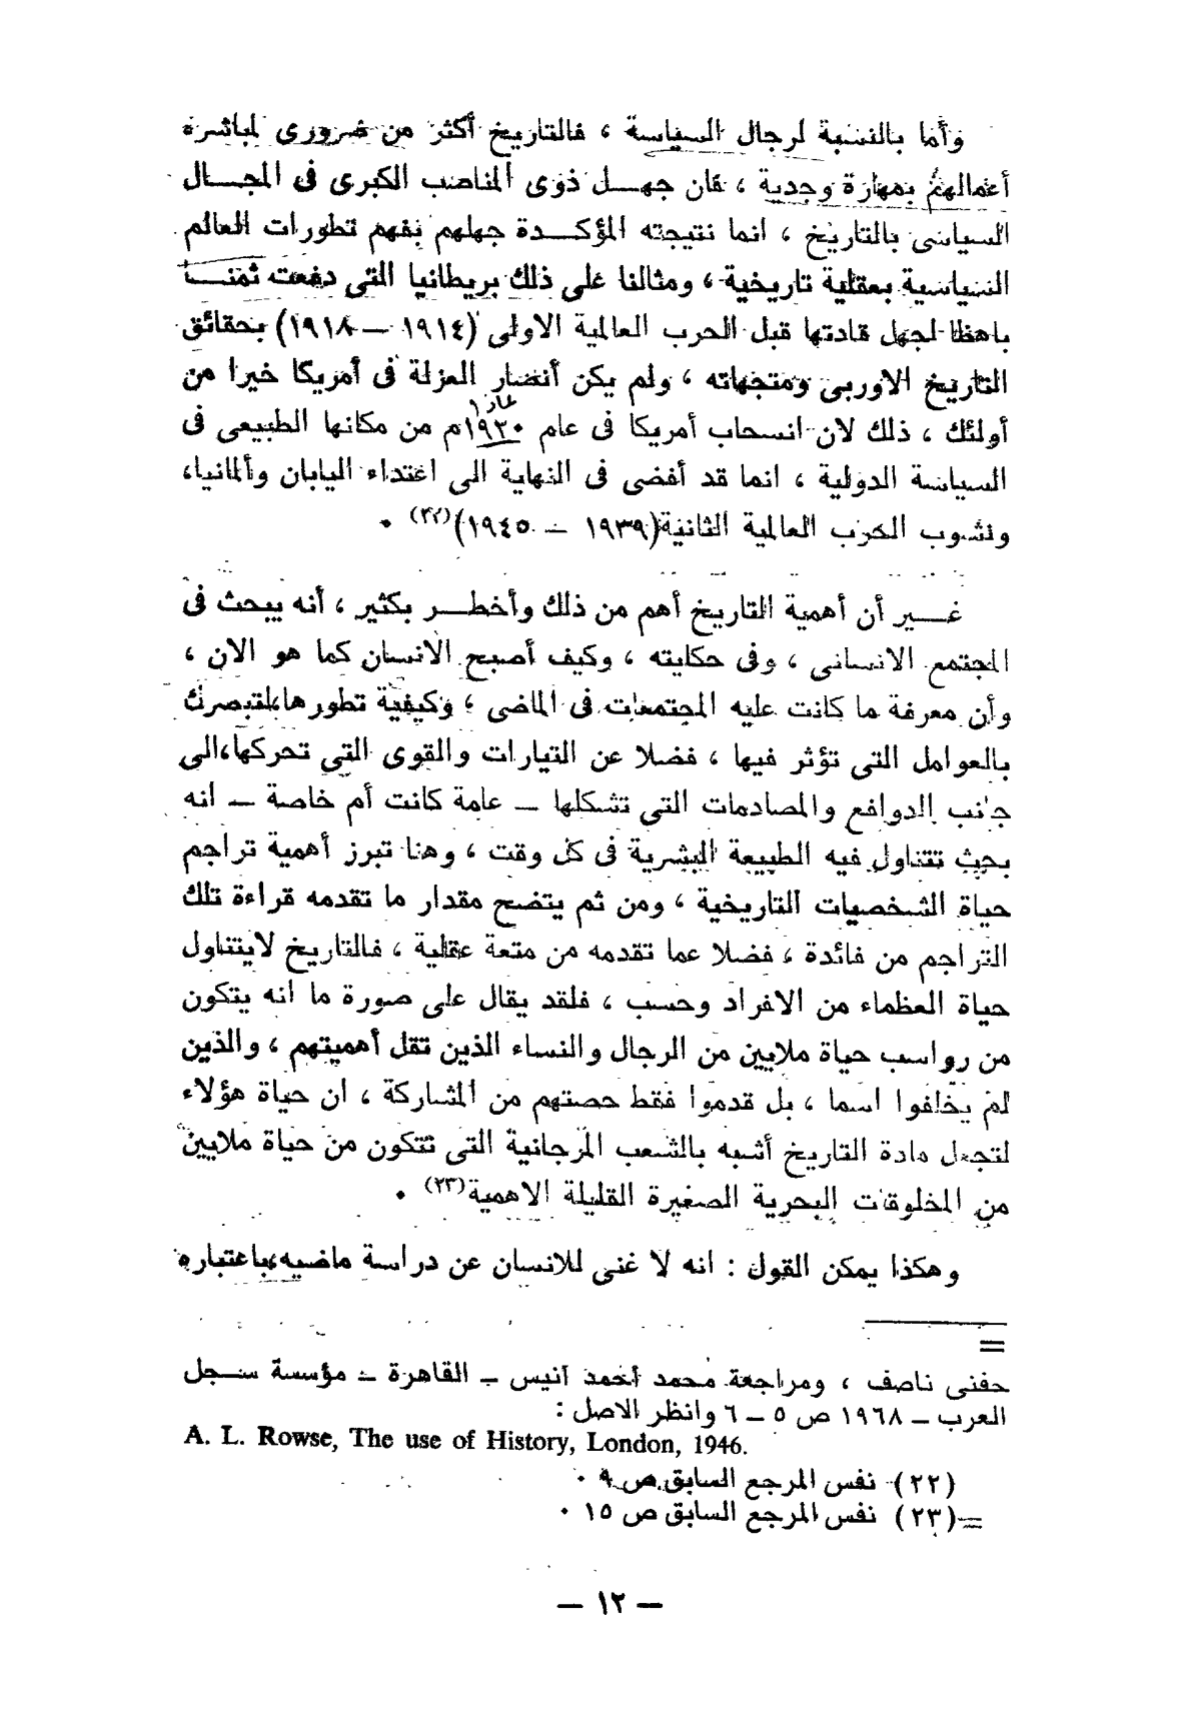 وأما بالنسبة لرجال السياسة ، فالتاريخ أكثر من ضرورى لمباشرة
أعمالهم بمهارة وجدية ، فان جهـــل ذوى المناصب الكبرى فى المجـــال
السياسى بالتاريخ ، انما نتيجته المؤكـــدة جهلهم بفهم تطورات العالم
السياسية بعقلية تاريخية ، ومثالنا على ذلك بريطانيا التى دفعت ثمنـــا
باهظا لجهل قادتها قبل الحرب العالمية الاولى (١٩١٤ – ١٩١٨) بحقائق
التاريخ الاوربى ومتجهاته ، ولم يكن أنصار العزلة فى أمريكا خيرا من
أولئك ، ذلك لان انسحاب أمريكا فى عام ١٩٢٠م من مكانها الطبيعى فى
السياسة الدولية ، انما قد أفضى فى النهاية الى اعتداء اليابان وألمانيا،
ونشوب الحرب العالمية الثانية(١٩٣٩ – ١٩٤٥)(٢٢) ٠
غـــير أن أهمية التاريخ أهم من ذلك وأخطـــر بكثير ، أنه يبحث فى
المجتمع الانسانى ، وفى حكايته ، وكيف أصبح الانسان كما هو الان ،
وأن معرفة ما كانت عليه المجتمعات فى الماضى ، وكيفية تطورها،لتبصرك
بالعوامل التى تؤثر فيها ، فضلا عن التيارات والقوى التى تحركها،الى
جانب الدوافع والمصادمات التى تشكلها – عامة كانت أم خاصة – انه
بحث تتناول فيه الطبيعة البشرية فى كل وقت ، وهنا تبرز أهمية تراجم
حياة الشخصيات التاريخية ، ومن ثم يتضح مقدار ما تقدمه قراءة تلك
التراجم من فائدة ، فضلا عما تقدمه من متعة عقلية ، فالتاريخ لايتناول
حياة العظماء من الافراد وحسب ، فلقد يقال على صورة ما انه يتكون
من رواسب حياة ملايين من الرجال والنساء الذين تقل أهميتهم ، والذين
لم يخلفوا اسما ، بل قدموا فقط حصتهم من المشاركة ، ان حياة هؤلاء
لتجعل مادة التاريخ أشبه بالشعب المرجانية التى تتكون من حياة ملايين
من المخلوقات البحرية الصغيرة القليلة الاهمية(٢٣) ٠
وهكذا يمكن القول : انه لا غنى للانسان عن دراسة ماضيه،باعتباره
=
حفنى ناصف ، ومراجعة محمد أحمد أنيس – القاهرة – مؤسسة ســـجل
العرب – ١٩٦٨ ص ٥ – ٦ وانظر الاصل :
A. L. Rowse, The use of History, London, 1946.
(٢٢) نفس المرجع السابق ص ٩ ٠
=(٢٣) نفس المرجع السابق ص ١٥ ٠
– ١٢ –